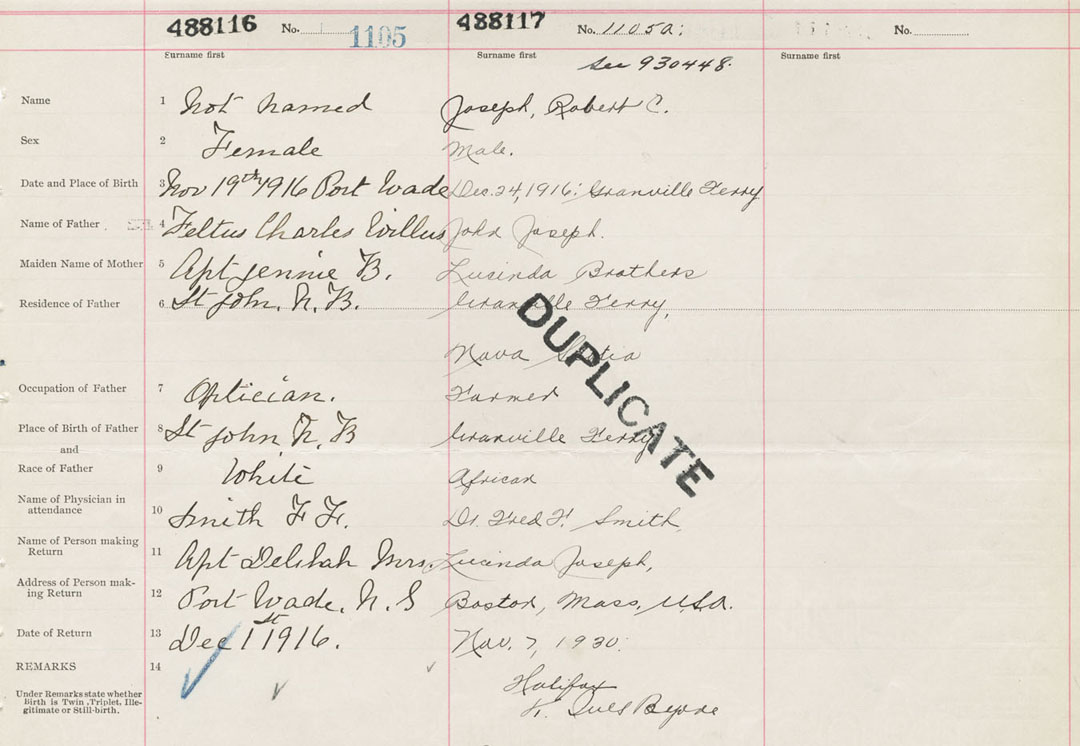 488116 No. 1105 488117 No. 1105a; No.
Surname first Surname first See 930448. Surname first
Name 1 Not named Joseph, Robert C.
Sex 2 Female Male.
Date and Place of Birth 3 Nov 19th 1916 Port Wade Dec. 24, 1916; Granville Ferry
Name of Father 4 Feltus Charles Willus John Joseph.
Maiden Name of Mother 5 Apt Jennie B. Lucinda Brothers
Residence of Father 6 St John, N. B. Granville Ferry,
Nova Scotia
DUPLICATE
Occupation of Father 7 Optician. Farmer
Place of Birth of Father 8 St John, N. B Granville Ferry
and
Race of Father 9 White African
Name of Physician in
attendance 10 Smith F F. Dr. Fred F. Smith,
Name of Person making
Return 11 Apt Delilah Mrs. Lucinda Joseph,
Address of Person mak-
ing Return 12 Port Wade, N. S Boston, Mass, U.S.A.
Date of Return 13 Dec 1st 1916. Nov. 7, 1930.
REMARKS 14
Under Remarks state whether
Birth is Twin, Triplet, Ille-
gitimate or Still-birth.
Halifax
Byrne